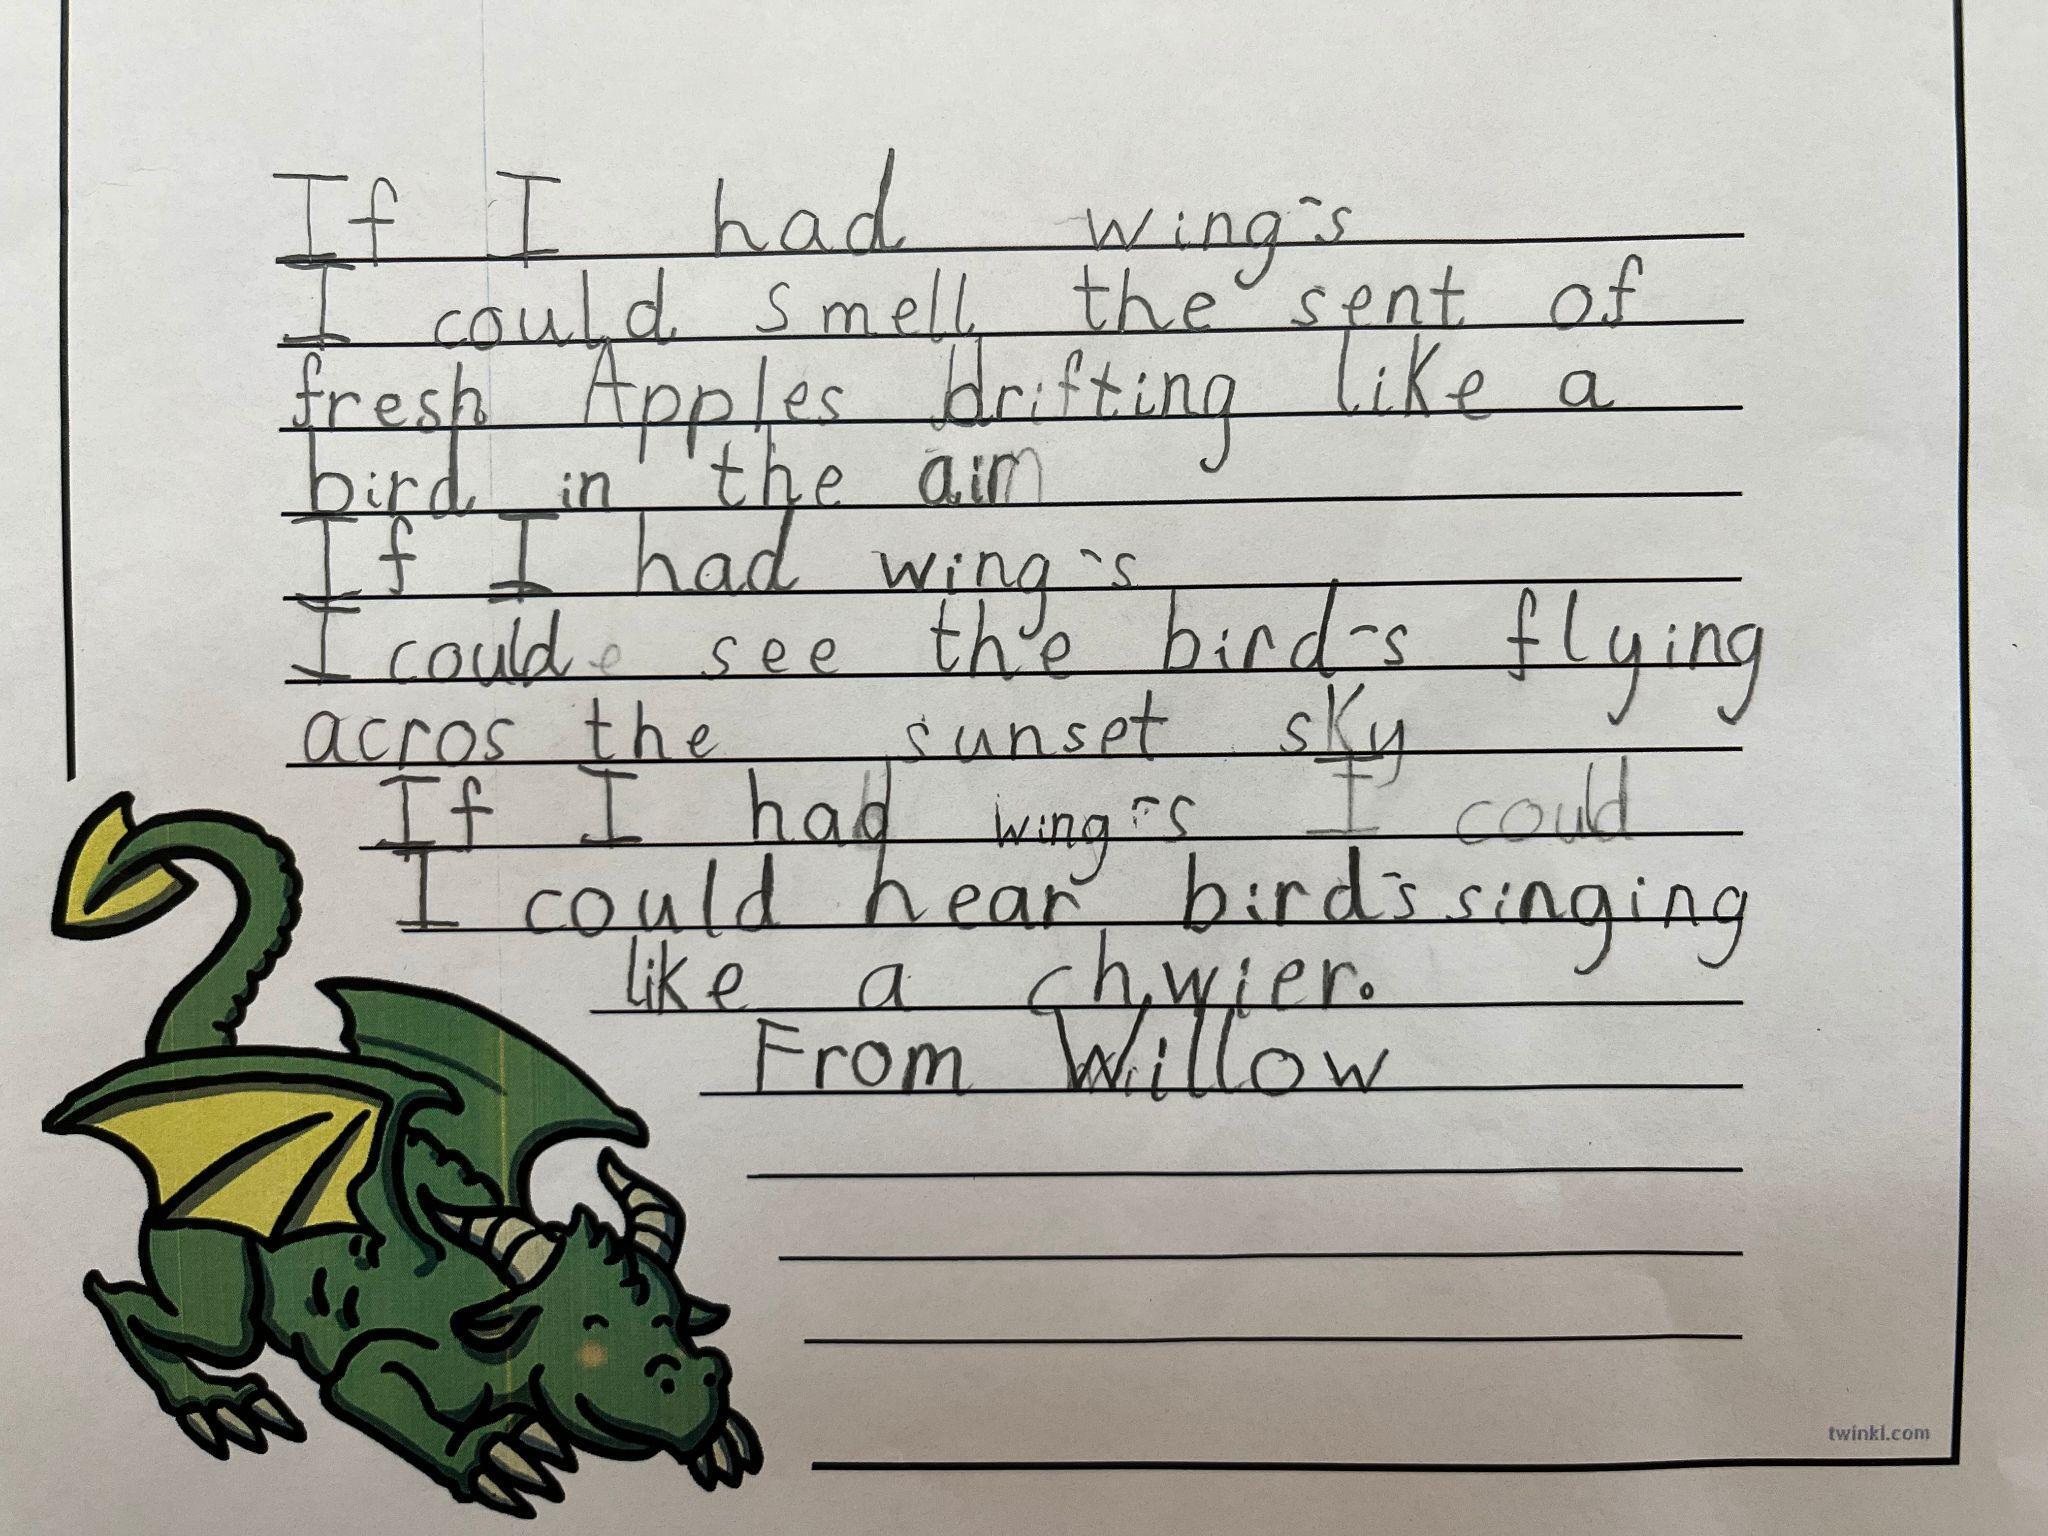 If I had wing's
I could smell the sent of
fresh Apples drifting like a
bird in the air
If I had wing's
I could see the bird's flying
acros the sunset sky
If I had wing's I could
I could hear bird's singing
like a chwier.
From Willow
twinkl.com